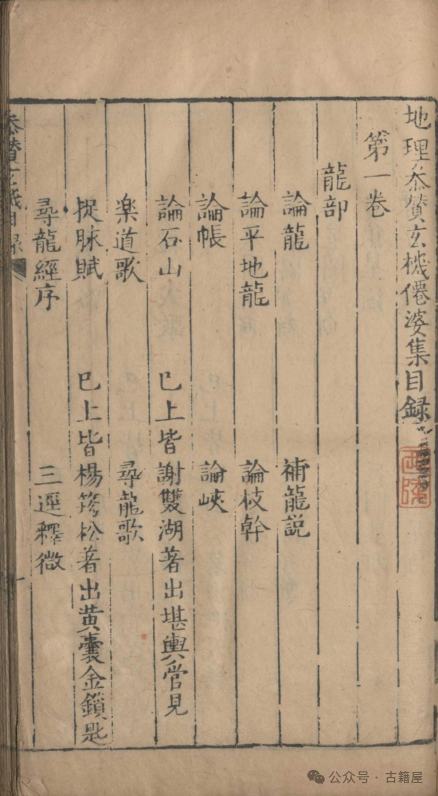 地理叅贊玄機僊婆集目録
第一卷
龍部
論龍 補龍説
論平地龍 論枝幹
論帳 論峽
論石山 已上皆謝雙湖著出堪輿管見
楽道歌 尋龍歌
捉脉賦 已上皆楊筠松著出黄囊金鎖匙
尋龍經序 三運釋微
公众号·古籍屋